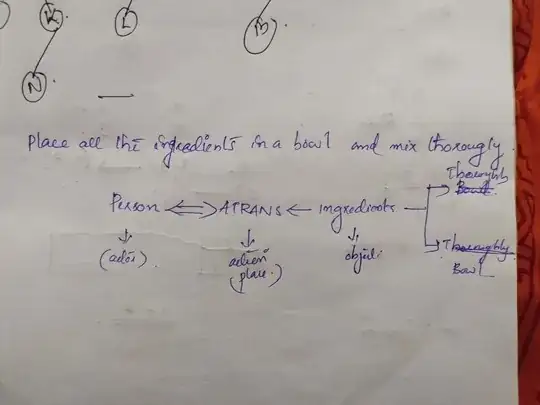 K L B
N
Place all the ingredients in a bowl and mix thorougly.
Thoroughly
Bowl
Person ⟺ ATRANS ← ingredients
Thoroughly
Bowl
(actor). action object
(place)